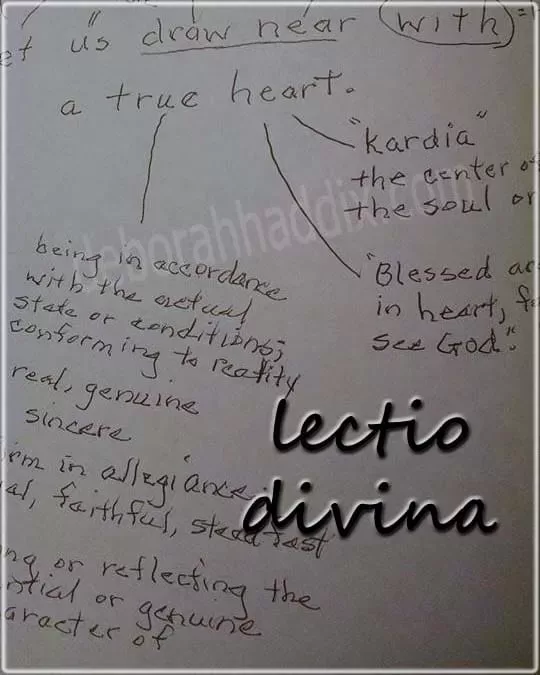 et us draw near with =
a true heart.
"Kardia"
the center of
the soul or
being in accordance
with the actual
state or conditions;
conforming to reality
real, genuine
sincere
"Blessed are
in heart, fo
see God."
rm in allegiance
al, faithful, steadfast
ng or reflecting the
ntial or genuine
aracter of
lectio
divina
deborahhaddix.com